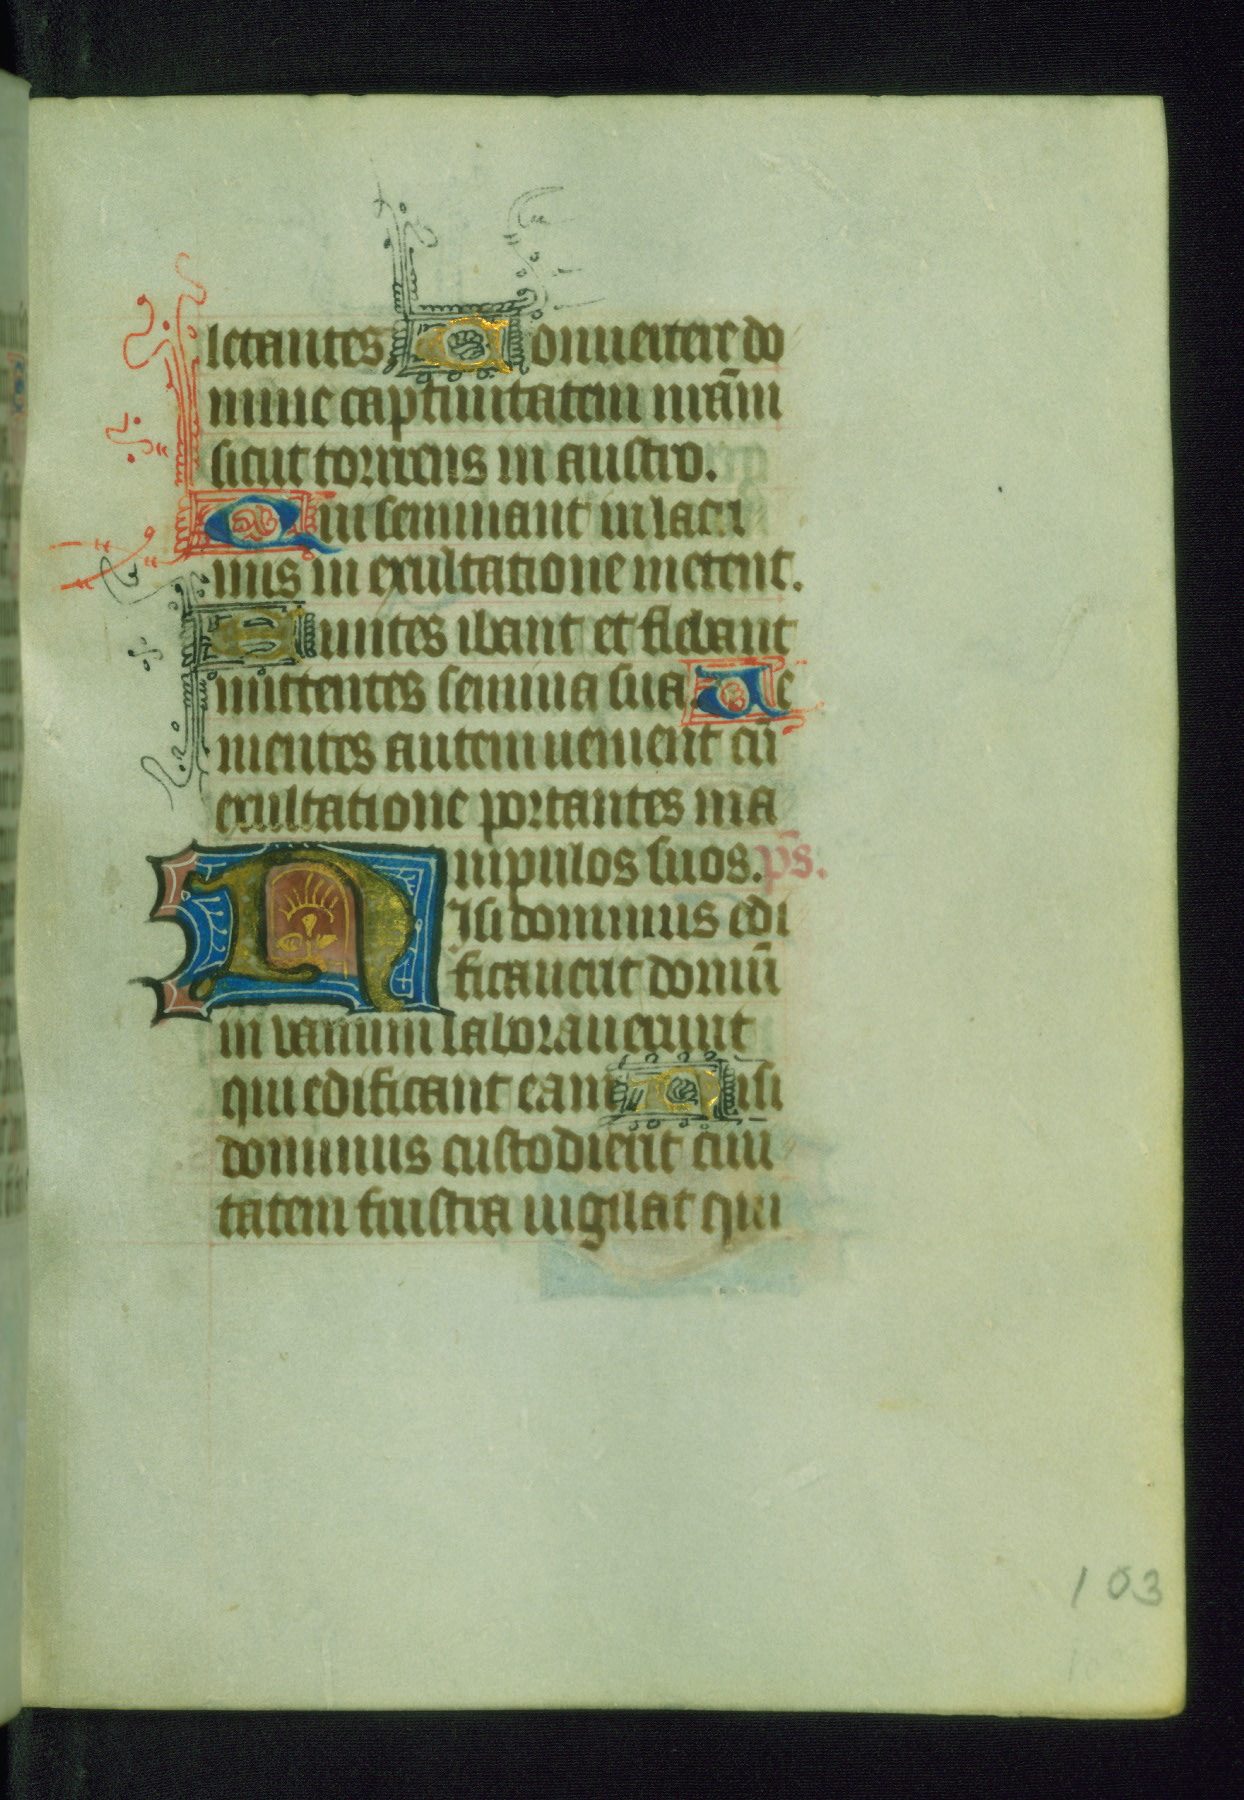 letantes Conuertere do
mine captiuitatem nr̄am
sicut torrens in austro.
Qui seminant in lacri
mis in exultatione metent.
Euntes ibant et flebant
mittentes semina sua. Ve
nientes autem uenient cū
exultatione portantes ma
nipulos suos. p̄s.
Nisi dominus edi
ficauerit domū
in vanum laborauerunt
qui edificant eam Nisi
dominus custodierit ciui
tatem frustra uigilat qui
103